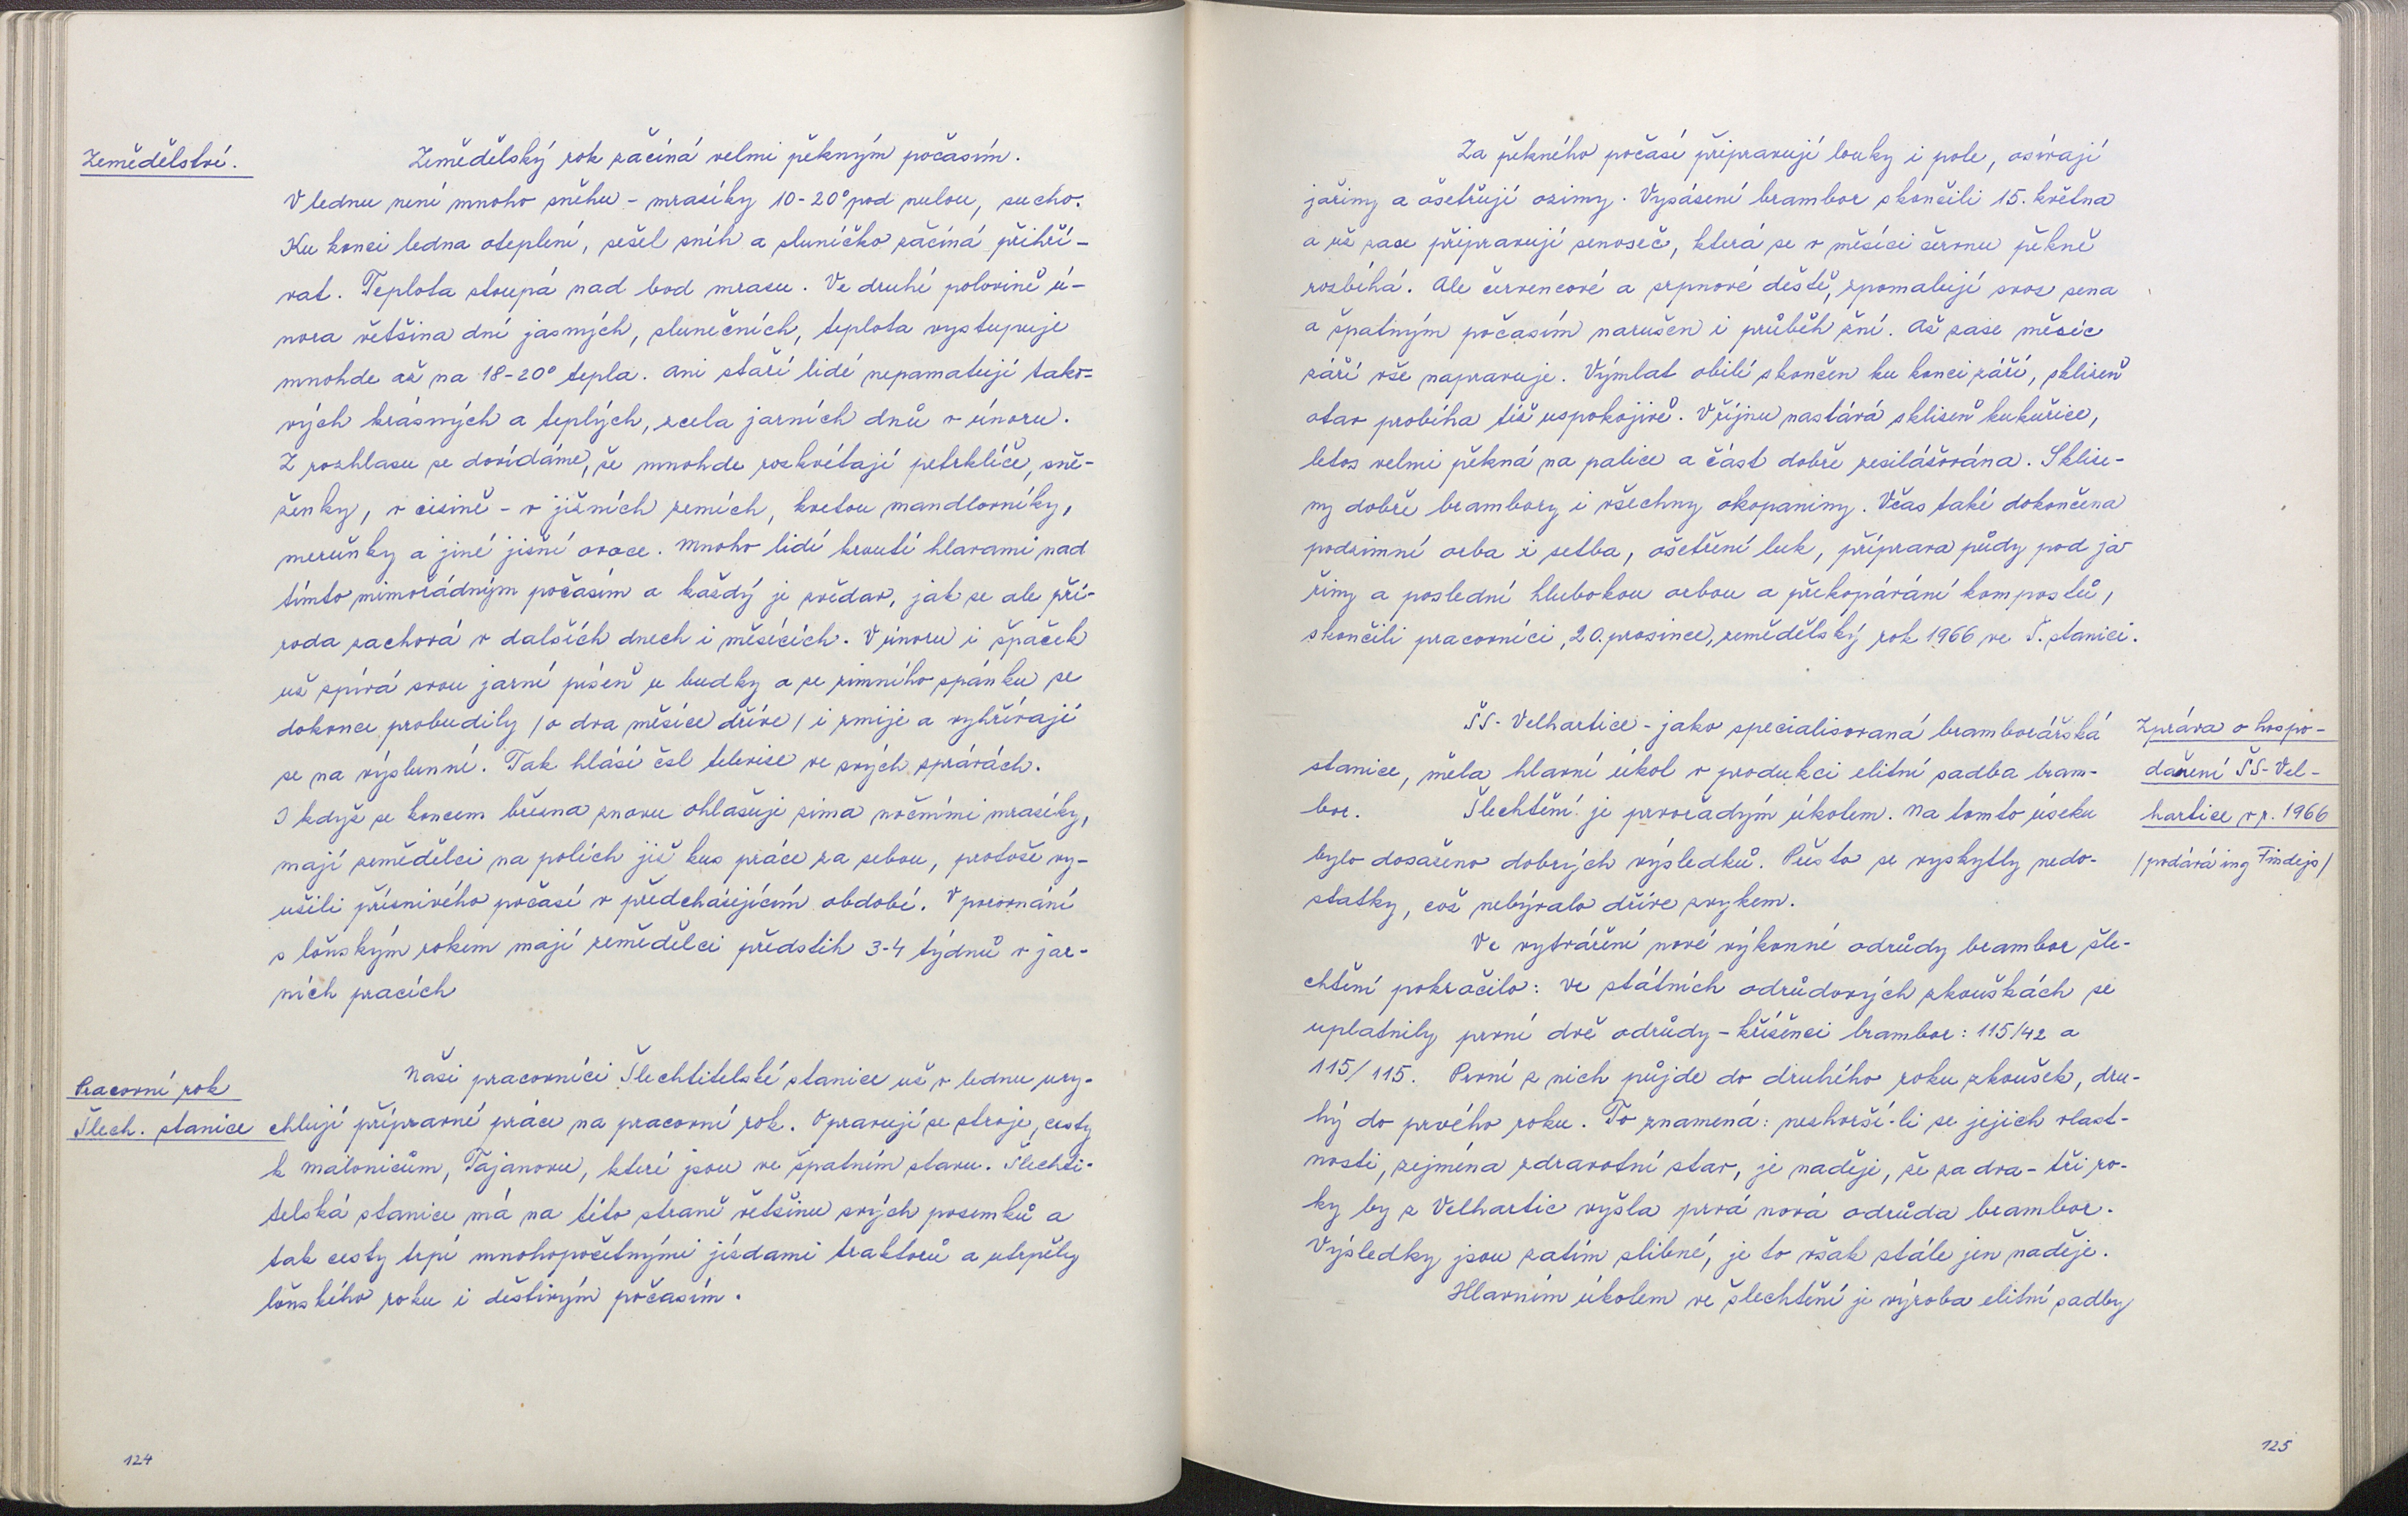 Zemědělství.
Zemědělský rok začíná velmi pěkným počasím.
V lednu není mnoho sněhu - mrazíky 10-20° pod nulou, sucho.
Ku konci ledna oteplení, sešel sníh a sluníčko začíná přihří-
vat. Teplota stoupá nad bod mrazu. Ve druhé polovině ú-
nora většina dní jasných, slunečních, teplota vystupuje
mnohde až na 18-20° tepla. Ani staří lidé nepamatují tako=
vých krásných a teplých, zcela jarních dnů v únoru.
Z rozhlasu se dovídáme, že mnohde rozkvétají petrklíče, sně-
ženky, v cizině - v jižních zemích, kvetou mandlovníky,
meruňky a jiné jižní ovoce. Mnoho lidí kroutí hlavami nad
tímto mimořádným počasím a každý je zvědav, jak se ale pří-
roda zachová v dalších dnech i měsících. V únoru i špaček
už zpívá svou jarní píseň u budky a ze zimního spánku se
dokonce probudily /o dva měsíce dříve/ i zmije a vyhřívají
se na výslunní. Tak hlásí čsl televise ve svých zprávách.
I když se koncem března znovu ohlašuje zima nočními mrazíky,
mají zemědělci na polích již kus práce za sebou, protože vy-
užili příznivého počasí v předcházejícím období. V porovnání
s loňským rokem mají zemědělci předstih 3-4 týdnů v jar-
ních pracích
Pracovní rok
Šlech. stanice
Naši pracovníci Šlechtitelské stanice už v lednu ury-
chlují přípravné práce na pracovní rok. Opravují se stroje, cesty
k Malonicům, Tajanovu, které jsou ve špatném stavu. Šlechti-
telská stanice má na této straně většinu svých pozemků a
tak cesty trpí mnohopočetnými jízdami traktorů a utrpěly
loňského roku i deštivým počasím.
124
Za pěkného počasí připravují louky i pole, osívají
jařiny a ošetřují ozimy. Vysázení brambor skončili 15. května
a už zase připravují senoseč, která se v měsíci červnu pěkně
rozbíhá. Ale červencové a srpnové deště, zpomalují svoz sena
a špatným počasím narušen i průběh žní. Až zase měsíc
září vše napravuje. Výmlat obilí skončen ku konci září, sklizeň
otav probíha též uspokojivě. V říjnu nastává sklizeň kukuřice,
letos velmi pěkná na palice a část dobře zesilážována. Sklize-
ny dobře brambory i všechny okopaniny. Včas také dokončena
podzimní orba i setba, ošetření luk, příprava půdy pod ja-
řiny a poslední hlubokou orbou a překopávání kompostů,
skončili pracovníci, 20. prosince, zemědělský rok 1966 ve Š. stanici.
ŠS- Velhartice - jako specialisovaná bramborářská
stanice, měla hlavní úkol v produkci elitní sadba bram-
bor. Šlechtění je prvořadým úkolem. Na tomto úseku
bylo dosaženo dobrých výsledků. Přesto se vyskytly nedo-
statky, což nebývalo dříve zvykem.
Zpráva o hospo-
daření ŠS- Vel-
hartice v r. 1966
/podává ing Findejs/
Ve vytváření nové výkonné odrůdy brambor šle-
chtění pokročilo: ve státních odrůdových zkouškách se
uplatnily první dvě odrůdy - kříženci brambor: 115/42 a
115/115. První z nich půjde do druhého roku zkoušek, dru-
hý do prvého roku. To znamená: nezhorší-li se jejich vlast-
nosti, zejména zdravotní stav, je naděje, že za dva - tři ro-
ky by z Velhartic vyšla prvá nová odrůda brambor.
Výsledky jsou zatím slibné, je to však stále jen naděje.
Hlavním úkolem ve šlechtění je výroba elitní sadby
125